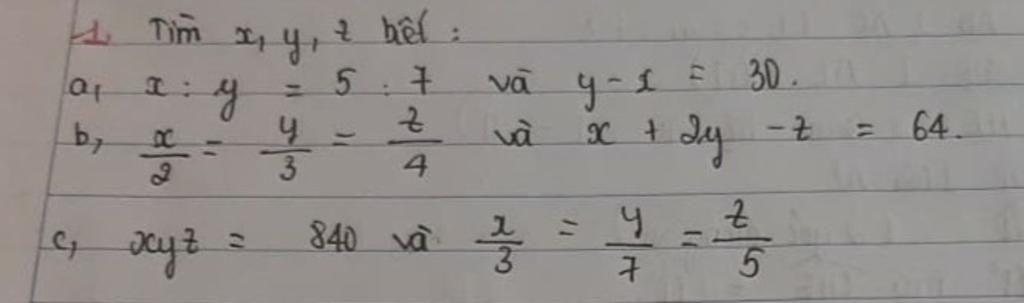 1. Tìm x, y, z biết :
a, x : y = 5 : 7 và y - x = 30.
b, x/2 = y/3 = z/4 và x + 2y - z = 64.
c, xyz = 840 và x/3 = y/7 = z/5